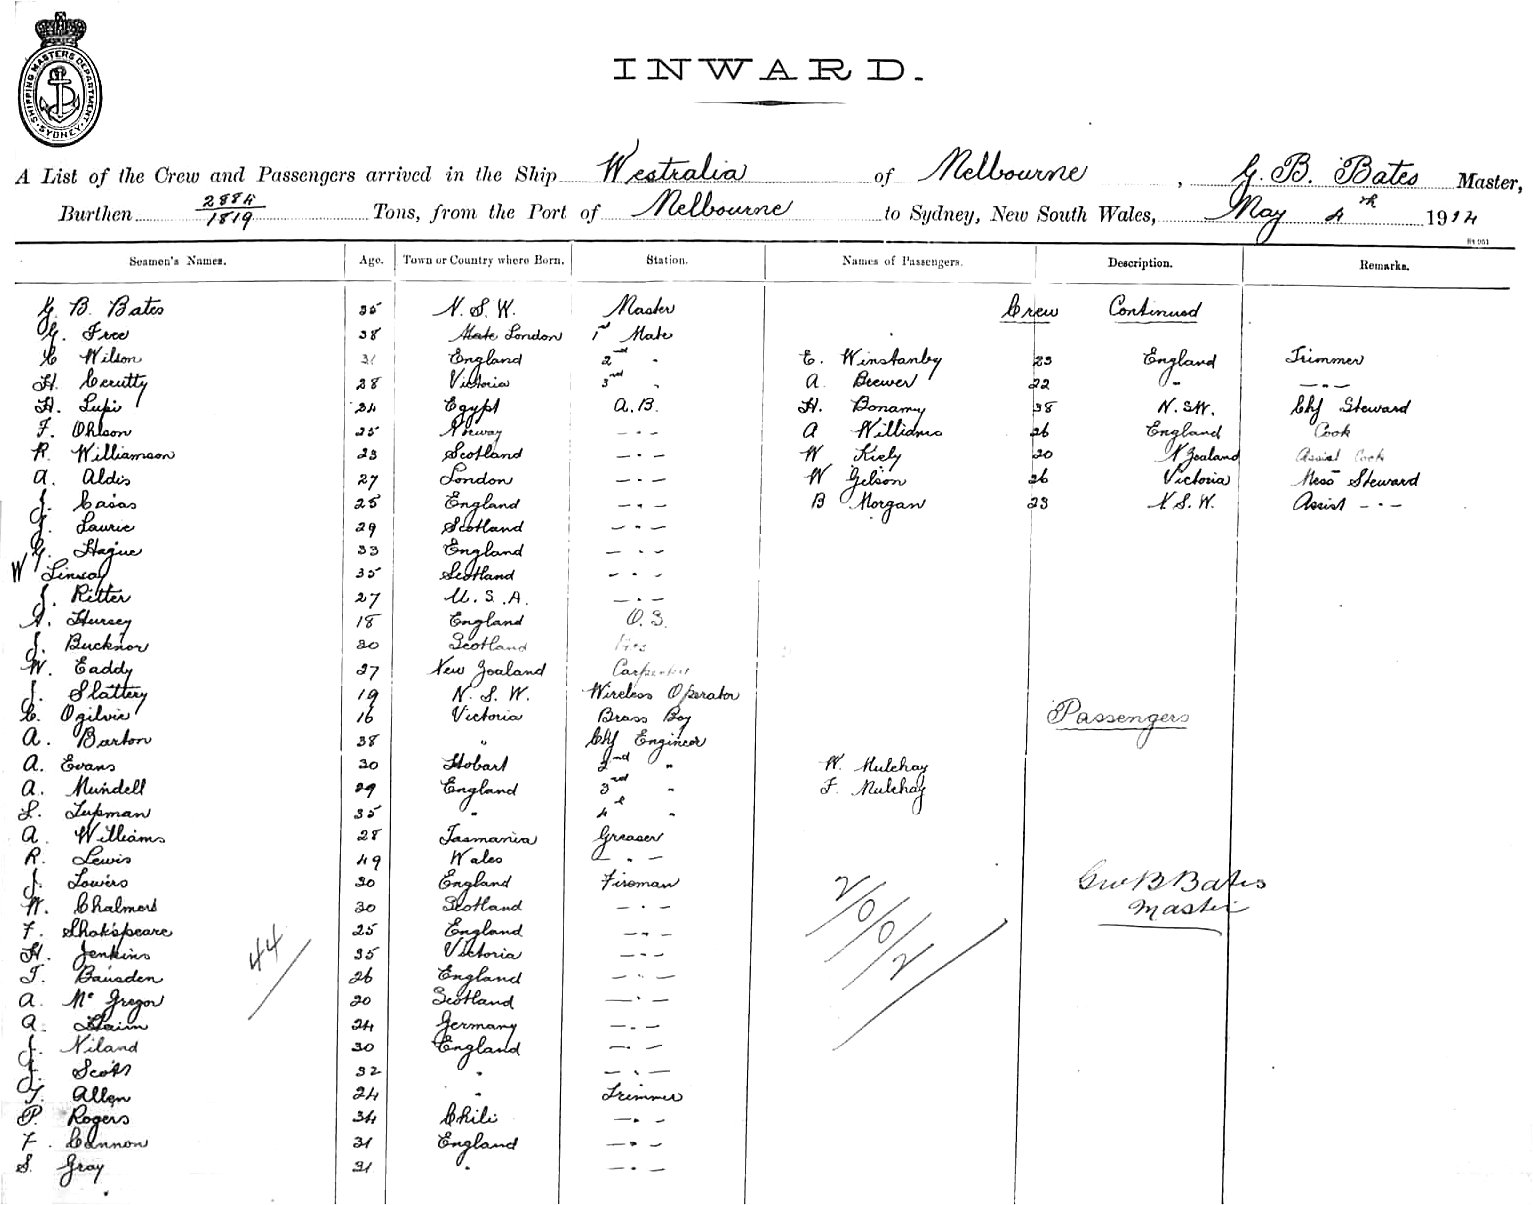 SHIPPING MASTERS DEPARTMENT SYDNEY
INWARD.
A List of the Crew and Passengers arrived in the Ship Westralia of Melbourne, G. B. Bates Master,
Burthen 2884/1819 Tons, from the Port of Melbourne to Sydney, New South Wales, May 4th 1914
Seamen's Names. Age. Town or Country where Born. Station. Names of Passengers. Description. Remarks.
G. B. Bates 35 N. S. W. Master Crew Continued
G. Free 38 Mate London 1st Mate
C Wilson 31 England 2nd " E. Winstanby 23 England Trimmer
H. Cerutty 28 Victoria 3rd " A Brewer 22 " — " —
H. Lupi 24 Egypt A.B. H. Bonamy 38 N. S.W. Chf Steward
F. Ohlson 25 Norway — " — A Williams 26 England Cook
R. Williamson 23 Scotland — " — W Kiely 20 N Zealand Assist Cook
A. Aldis 27 London — " — W Gelson 26 Victoria Mess Steward
J. Casas 25 England — " — B Morgan 23 N S. W. Assist — " —
J. Laurie 29 Scotland — " —
G. Hague 33 England — " —
W Linsay 35 Scotland — " —
J. Ritter 27 U. S. A. — " —
A. Hursey 18 England O. S.
J. Bucknor 20 Scotland
W. Eaddy 27 New Zealand Carpenter
J. Slattery 19 N. S. W. Wireless Operator
C. Ogilvie 16 Victoria Brass Boy Passengers
A. Barton 38 " Chf Engineer
A. Evans 30 Hobart 2nd " W. Mulchay
A. Mundell 29 England 3rd " F. Mulchay
L. Lupman 35 " 4th "
A. Williams 28 Tasmania Greaser
R. Lewis 49 Wales — " —
J. Lowers 30 England Fireman Geo B Bates
W. Chalmers 30 Scotland — " — Master
F. Shakspeare 25 England — " — 2/0/0/2
H. Jenkins 35 Victoria — " — 44
T. Bausden 26 England — " —
A. McGregor 20 Scotland — " —
A. Haim 24 Germany — " —
J. Niland 30 England — " —
J. Scott 32 " — " —
T. Allen 24 " Trimmer
P. Rogers 34 Chili — " —
F. Cannon 31 England — " —
S. Gray 31 " — " —